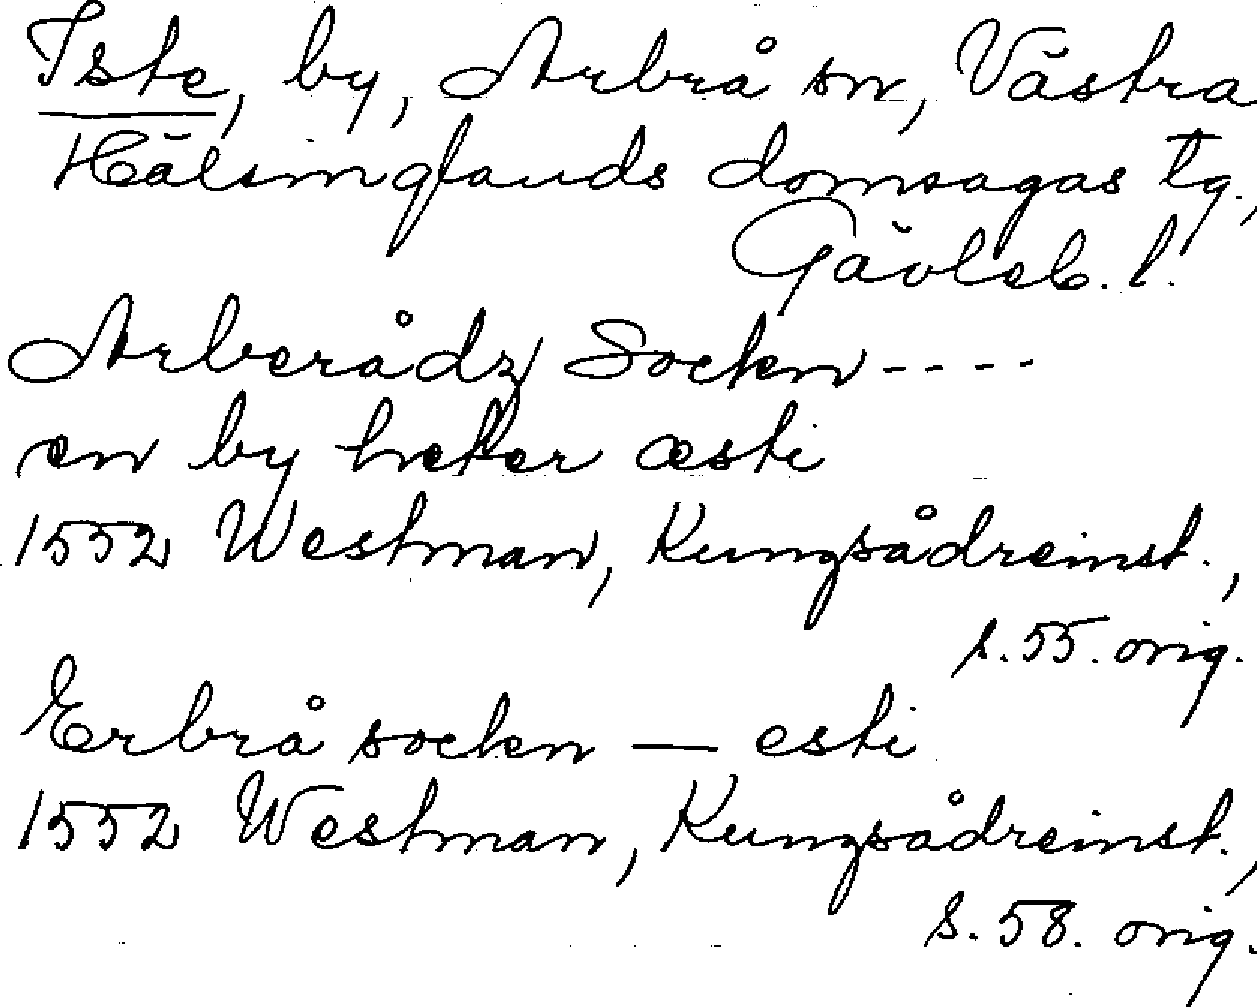 Iste, by, Arbrå sn, Västra
Hälsinglands domsagas tg.,
Gävleb. l.
Arberådz Sockn - - - -
en by heter æsti
1552 Westman, Kungsådreinst.,
s. 55. orig.
Erbrå sockn — esti
1552 Westman, Kungsådreinst.,
s. 58. orig.